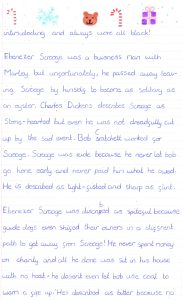 intimidating and always wore all black!
Ebenezer Scrooge was a business man with
Marley, but unfortunately, he passed away leav-
ing Scrooge by himself to become as solitary as
an oyster. Charles Dickens describes Scrooge as
Stone-hearted but even he was not dreadfully cut
up by the sad event. Bob Cratchett worked for
Scrooge. Scrooge was rude because he never let bob
go home early and never paid him what he owed.
He is described as tight-fisted and sharp as flint.
Ebenezer Scrooge was described as spiteful because
guide dogs even shifted their owners in a different
path to get away from Scrooge! He never spent money
on charity and all he done was sit in his house
with no heat - he doesn't even let bob use coal to
warm a fire up. He's described as bitter because no